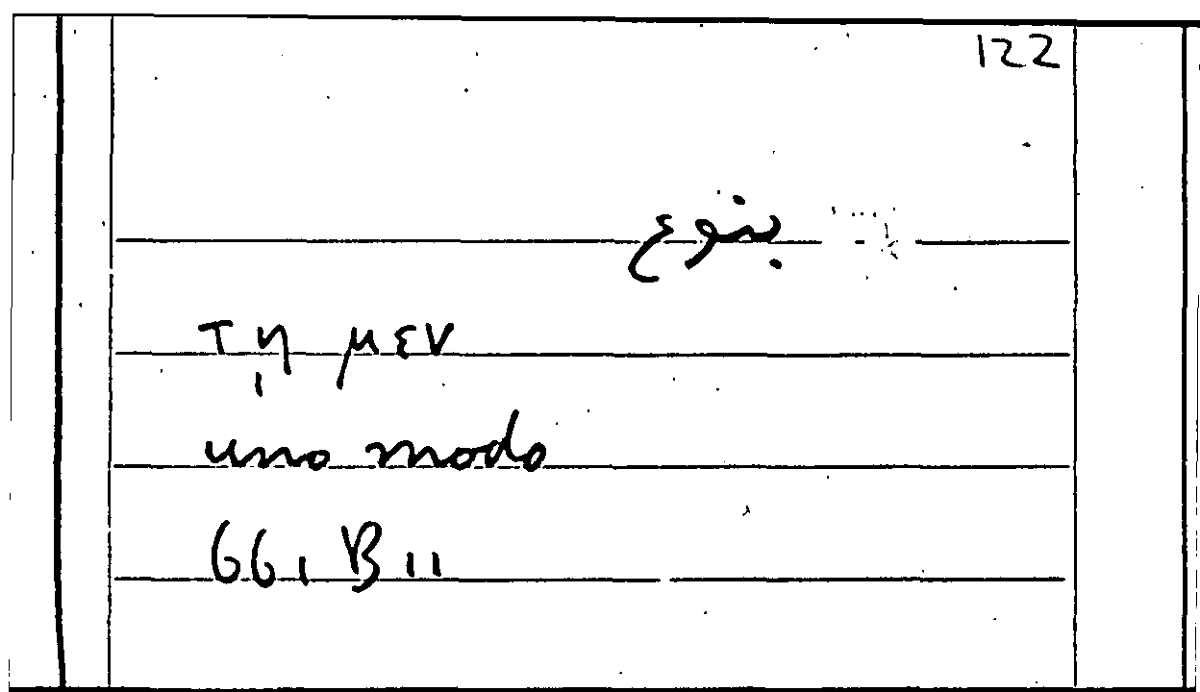 122
بنوع
τῃ μεν
uno modo
661 B 11